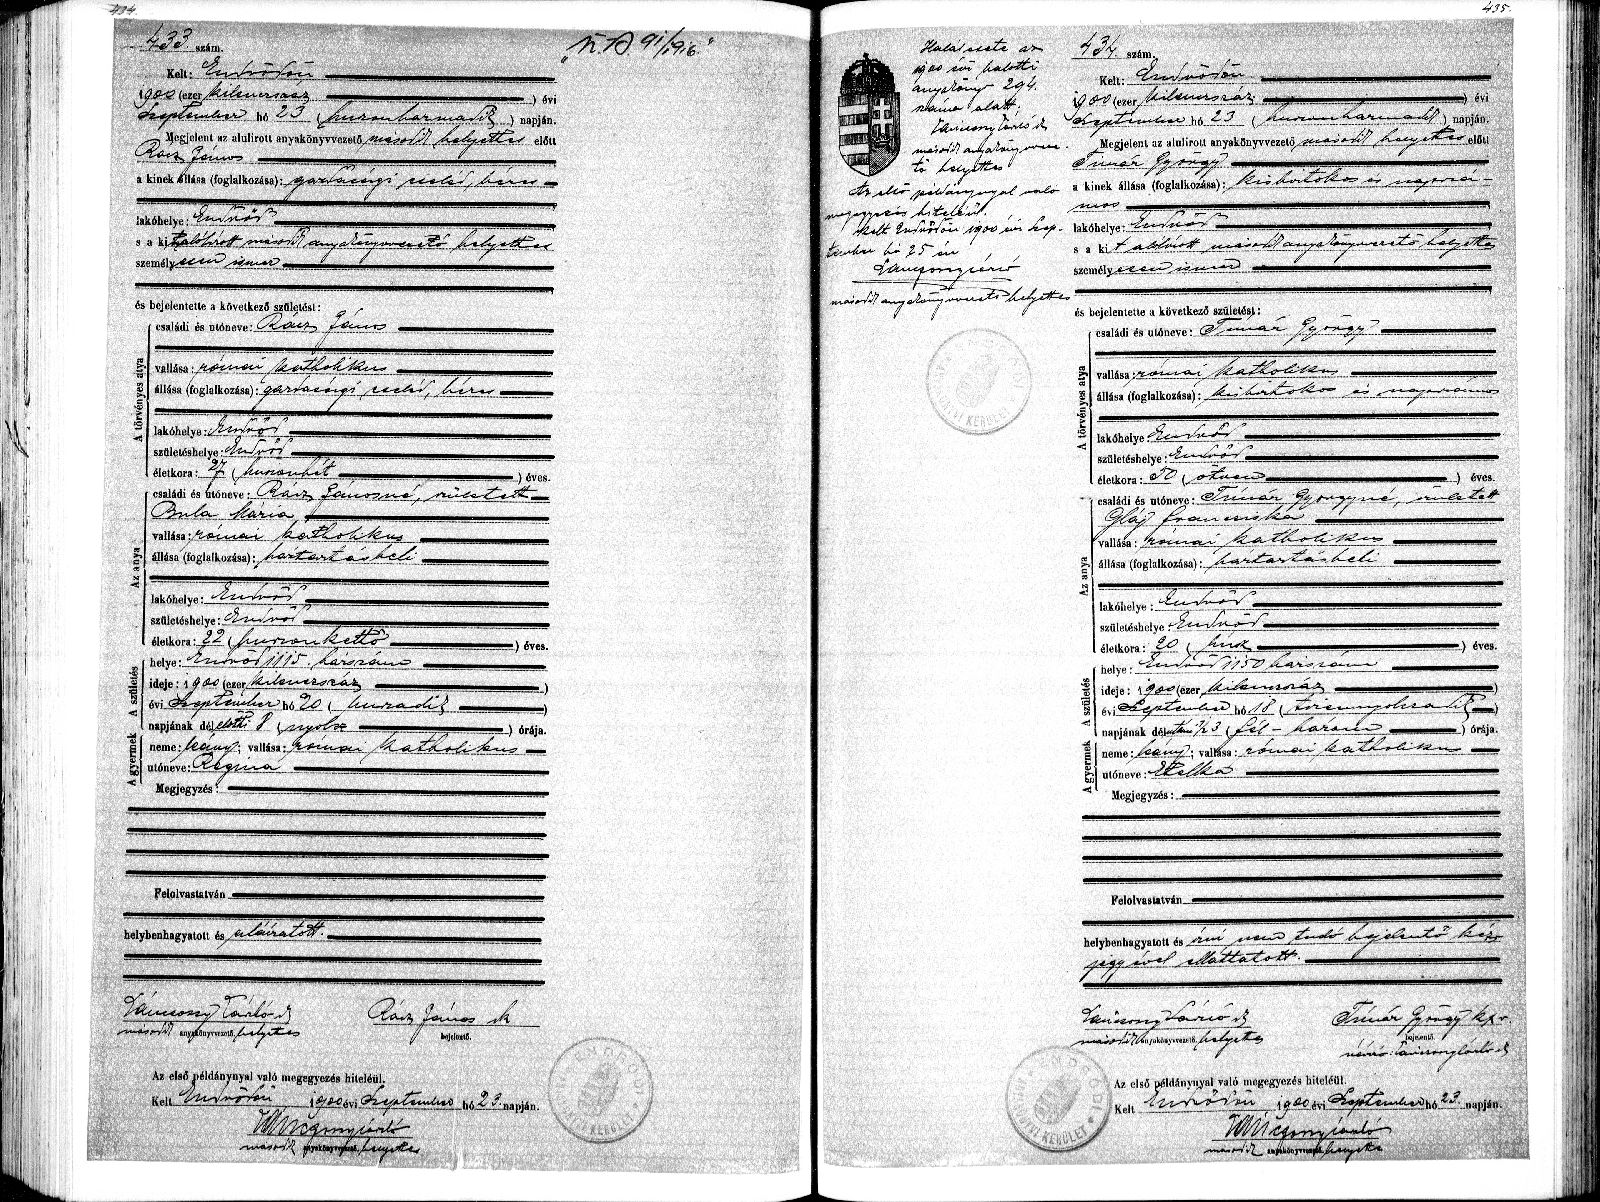 434.
433 szám.
"K. A. 91/1916."
Kelt: Endrődön
1900 (ezer kilenczszáz) évi
Szeptember hó 23 (huszonharmadik) napján.
Megjelent az alulirott anyakönyvvezető második helyettes előtt
Rácz János
a kinek állása (foglalkozása): gazdasági cseléd, béres
lakóhelye: Endrőd
s a kit alólirott második anyakönyvvezető helyettes
személyesen ismer
és bejelentette a következő születést:
A törvényes atya
családi és utóneve: Rácz János
vallása: római katholikus
állása (foglalkozása): gazdasági cseléd, béres
lakóhelye: Endrőd
születéshelye: Endrőd
életkora: 27 (huszonhét) éves.
Az anya
családi és utóneve: Rácz Jánosné, született
Bula Mária
vallása: római katholikus
állása (foglalkozása): háztartásbeli
lakóhelye: Endrőd
születéshelye: Endrőd
életkora: 22 (huszonkettő) éves.
A születés
helye: Endrőd 1115. házszám
ideje: 1900 (ezer kilenczszáz)
évi Szeptember hó 20 (huszadik)
napjának délelőtti 8 (nyolcz) órája.
A gyermek
neme: leány; vallása: római katholikus
utóneve: Regina
Megjegyzés:
Felolvastatván
helybenhagyatott és aláiratott.
második anyakönyvvezető, helyettes
Rácz János sk
bejelentő.
Az első példánynyal való megegyezés hiteléül.
Kelt Endrődön 1900 évi Szeptember hó 23. napján.
második anyakönyvvezető, helyettes
435.
Halálesete az
1900 évi halotti
anyakönyv 294.
száma alatt.
második anyakönyvveze-
tő helyettes
Az első példánynyal való
megegyezés hiteléül.
Kelt Endrődön 1900 évi Szep-
tember hó 25 én
második anyakönyvvezető helyettes
434. szám.
Kelt: Endrődön
1900 (ezer kilenczszáz) évi
Szeptember hó 23 (huszonharmadik) napján.
Megjelent az alulirott anyakönyvvezető második helyettes előtt
Timár György
a kinek állása (foglalkozása): kisbirtokos és napszá-
mos
lakóhelye: Endrőd
s a kit alólirott második anyakönyvvezető helyettes
személyesen ismer
és bejelentette a következő születést:
A törvényes atya
családi és utóneve: Timár György
vallása: római katholikus
állása (foglalkozása): kisbirtokos és napszámos
lakóhelye Endrőd
születéshelye: Endrőd
életkora: 50 (ötven) éves.
Az anya
családi és utóneve: Timár Györgyné, született
Gláj Francziska
vallása: római katholikus
állása (foglalkozása): háztartásbeli
lakóhelye: Endrőd
születéshelye Endrőd
életkora: 20 (húsz) éves.
A születés
helye: Endrőd 1150 házszám
ideje: 1900 (ezer kilenczszáz)
évi Szeptember hó 18 (tizennyolczadik)
napjának délutáni 1/2 3 (fél-három) órája.
A gyermek
neme: leány; vallása: római katholikus
utóneve: Etelka
Megjegyzés:
Felolvastatván
helybenhagyatott és irni nem tudó bejelentő kéz-
jegyével elláttatott.
második anyakönyvvezető, helyettes
Timár György
bejelentő.
Az első példánynyal való megegyezés hiteléül.
Kelt Endrődön 1900 évi Szeptember hó 23. napján.
második anyakönyvvezető, helyettes